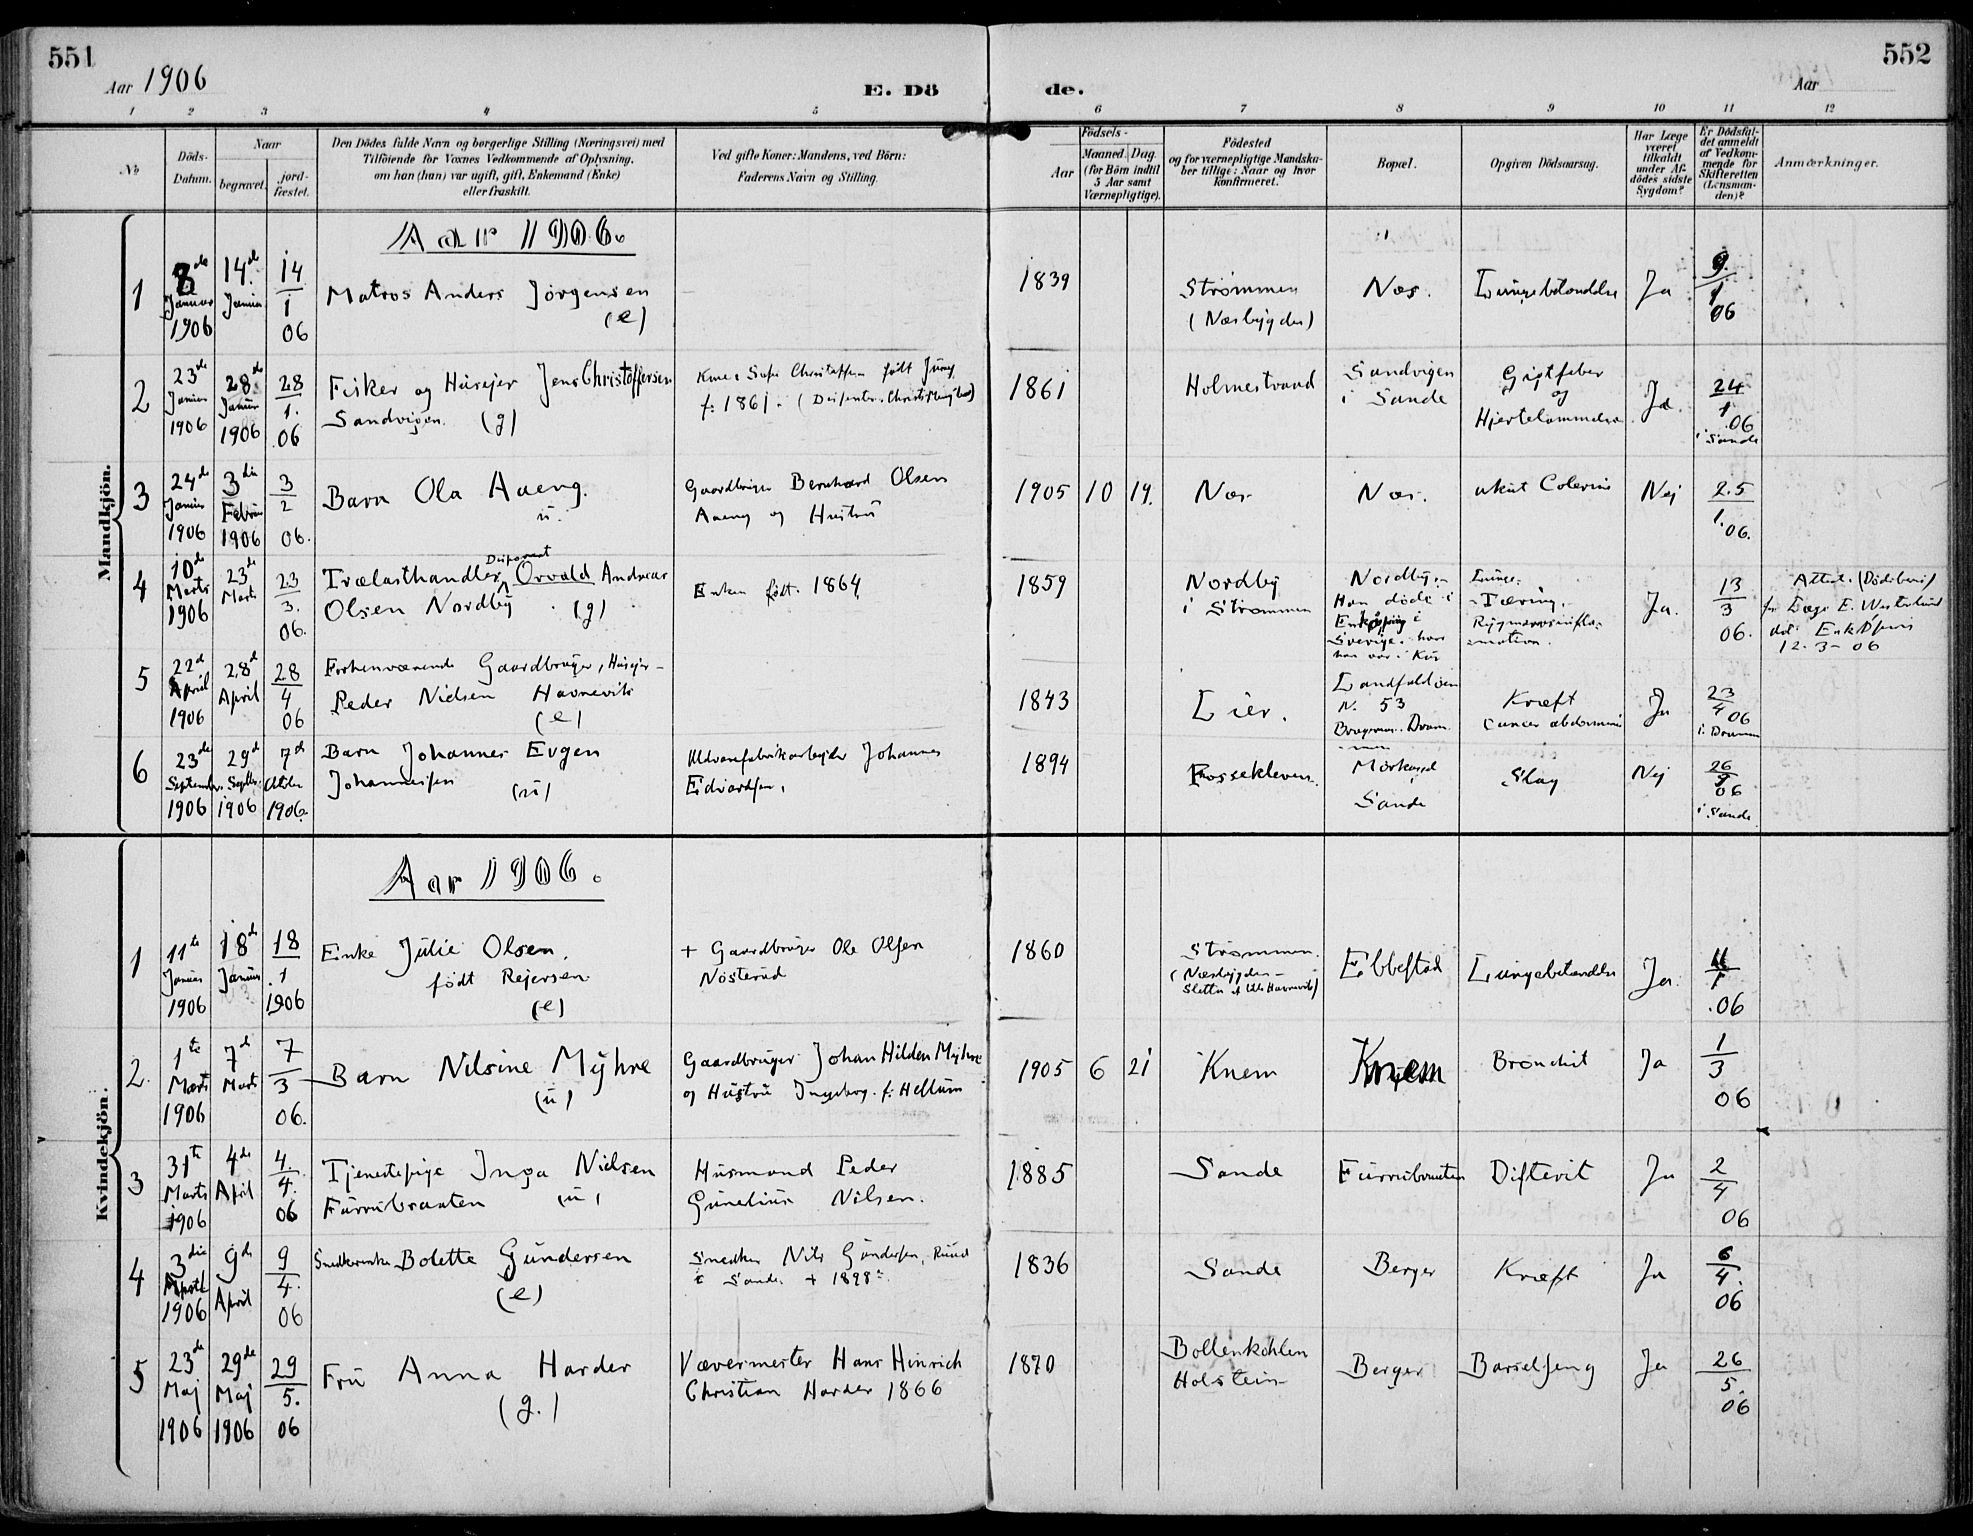 551
Aar 1906
E. Dö
de.
Aar
552
1 2 3 4 5 6 7 8 9 10 11 12
No
Döds-
Datum.
Naar
begravet.
jord-
fæstet.
Den Dödes fulde Navn og borgerlige Stilling (Næringsvei) med
Tilföiende for Voxnes Vedkommende af Oplysning,
om han (hun) var ugift, gift, Enkemand (Enke)
eller fraskilt.
Ved gifte Koner: Mandens, ved Börn:
Faderens Navn og Stilling.
Födsels-
Aar
Maaned. Dag.
(for Börn indtil
5 Aar samt
Værnepligtige).
Födested
og for værnepligtige Mandska-
ber tillige: Naar og hvor
Konfirmeret.
Bopæl.
Opgiven Dödsaarsag.
Har Læge
været
tilkaldt
under Af-
dödes sidste
Sygdom?
Er Dödsfal-
det anmeldt
af Vedkom-
mende for
Skifteretten
(Lensman-
den)?
Anmærkninger.
Mandkjön.
Aar 1906.
1
8de Januar 1906
14de Januar
14/1 06
Matros Anders Jørgensen
(e)
1839
Strømmen
(Næsbygden)
Næs.
Lungebetændelse
Ja
9/1 06
2
23de Januar 1906
28de Januar 1906
28/1. 06
Fisker og Husejer Jens Christoffersen
Sandvigen. (g)
f: 1861.
1861
Holmestrand
Sandvigen
i Sande
Gigtfeber
og
Hjertelammelse
Ja.
24/1 06
i Sande
3
24de Januar 1906
3die Februar 1906
3/2 06.
Barn Ola Aaeng.
u.
Gaardbruger Bernhard Olsen
Aaeng og Hustru
1905 10 19.
Næs
Næs.
akut Colerine
Nej
25/1. 06.
4
10de Marts 1906
23de Marts
23/3. 06.
Disponent
Trælasthandler Orvald Andreas
Olsen Nordby. (g)
Enken født. 1864
1859
Nordby
i Strømmen
Nordby.-
Han døde i
Enkøping i
Sverige. hvor
han var i Kur
Lunge-
Tæring.
Rygmarvsinfla-
mation.
Ja.
13/3 06.
Attest. (Dødsbevis)
fra Læge E. Westerlund
dat. Enköping
12-3-06
5
22de April 1906
28de April
28/4 06
Forhenværende Gaardbruger, Husejer-
Peder Nielsen Havnevik
(e)
1843
Lier.
Landfaldøen
N. 53
Bragernes. Dram-
men
Kræft
Cancer abdominis
Ja
23/4 06
i Drammen
6
23de September 1906
29de Septbr. 1906
7de Oktober 1906.
Barn Johannes Evgen
Johannessen (u)
Uldvarefabrikarbejder Johannes
Edvardsen.
1894
Fossekleven.
Sande
Slag
Nej
26/9 06
i Sande
Kvindekjön.
Aar 1906.
1
11te Januar 1906
18de Januar
18/1 1906
Enke Julie Olsen.
født Rejersen.
(e)
+ Gaardbruger Ole Olsen
Nøsterud
1860
Strømmen.
(Næsbygden-
Ebbestad
Lungebetændelse
Ja.
11/1 06
2.
1te Marts 1906
7de Marts
7/3 06.
Barn Nilsine Myhre
(u)
Gaardbruger Johan Hilden Myhre
og Hustru Ingeborg f: Hellum
1905 6 21
Knem
Knem
Bronchit
Ja
1/3 06
3
31te Marts 1906
4de April
4./4. 06
Tjenestepige Inga Nielsen
Furrubraaten (u)
Husmand Peder
Gunelius Nilsen.
1885
Sande
Furrubraaten
Difterit
Ja
2/4 06
4
3die April 1906
9de April
9/4. 06
Snedkerenke Bolette Gundersen
(e)
Snedker Nils Gundersen, Ruud
i Sande + 1898
1836
Sande
Berger
Kræft
Ja
6/4. 06
5
23de Maj 1906
29de Maj 1906
29/5. 06
Fru Anna Harder
(g.)
Vævermester Hans Hinrich
Christian Harder 1866
1870
Bollenkohlen
Holstein
Berger
Barselseng
Ja
26/5. 06